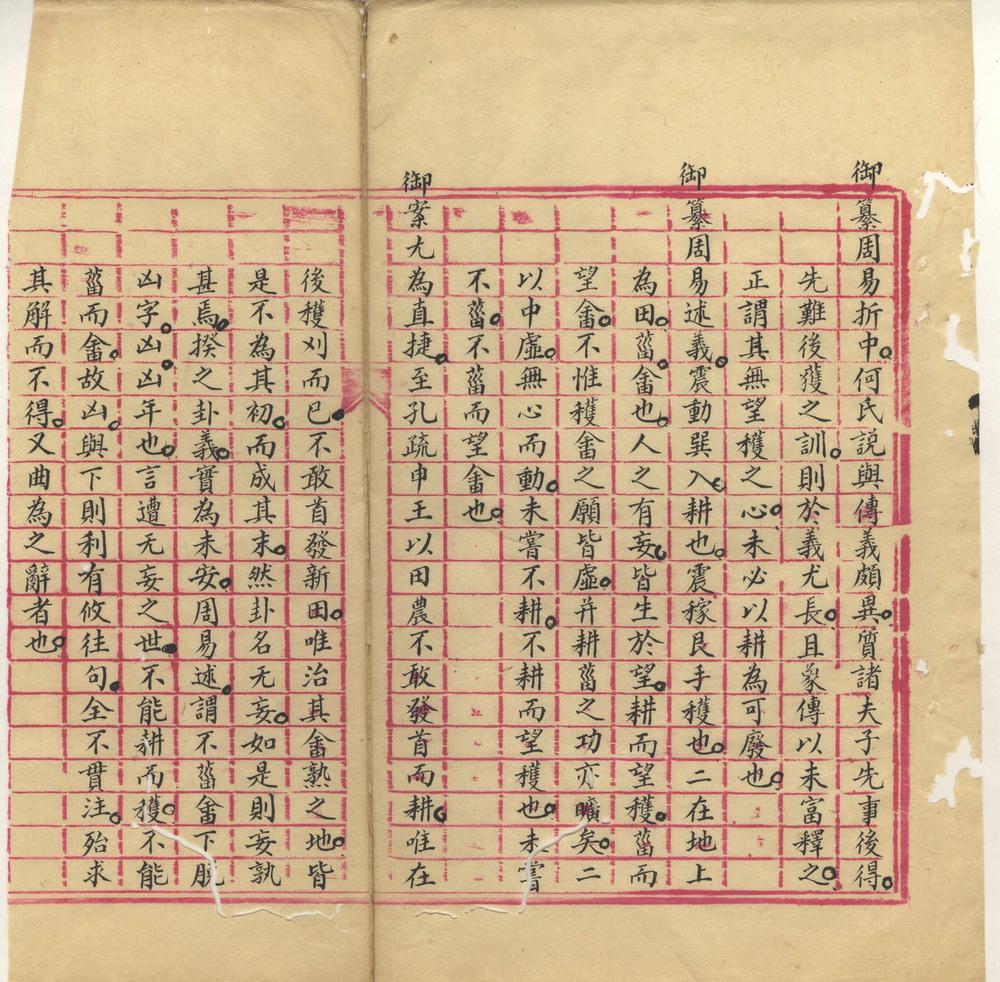 御纂周易折中何氏說與傳義頗異質諸夫子先事後得
先難後獲之訓則於義尤長且象傳以未富釋之
正謂其無望穫之心未必以耕為可廢也
御纂周易述義震動巽入耕也震稼艮手穫也二在地上
為田菑畬也人之有妄皆生於望耕而望穫菑而
望畬不惟穫畬之願皆虛并耕菑之功亦曠矣二
以中虛無心而動未嘗不耕不耕而望穫也未嘗
不菑不菑而望畬也
御案尤為直捷至孔疏申王以田農不敢發首而耕唯在
後穫刈而已不敢首發新田唯治其畬熟之地皆
是不為其初而成其末然卦名无妄如是則妄孰
甚焉揆之卦義實為未安周易述謂不菑畬下脫
凶字凶凶年也言遭无妄之世不能耕而穫不能
菑而畬故凶與下則利有攸往句全不貫注殆求
其解而不得又曲為之辭者也